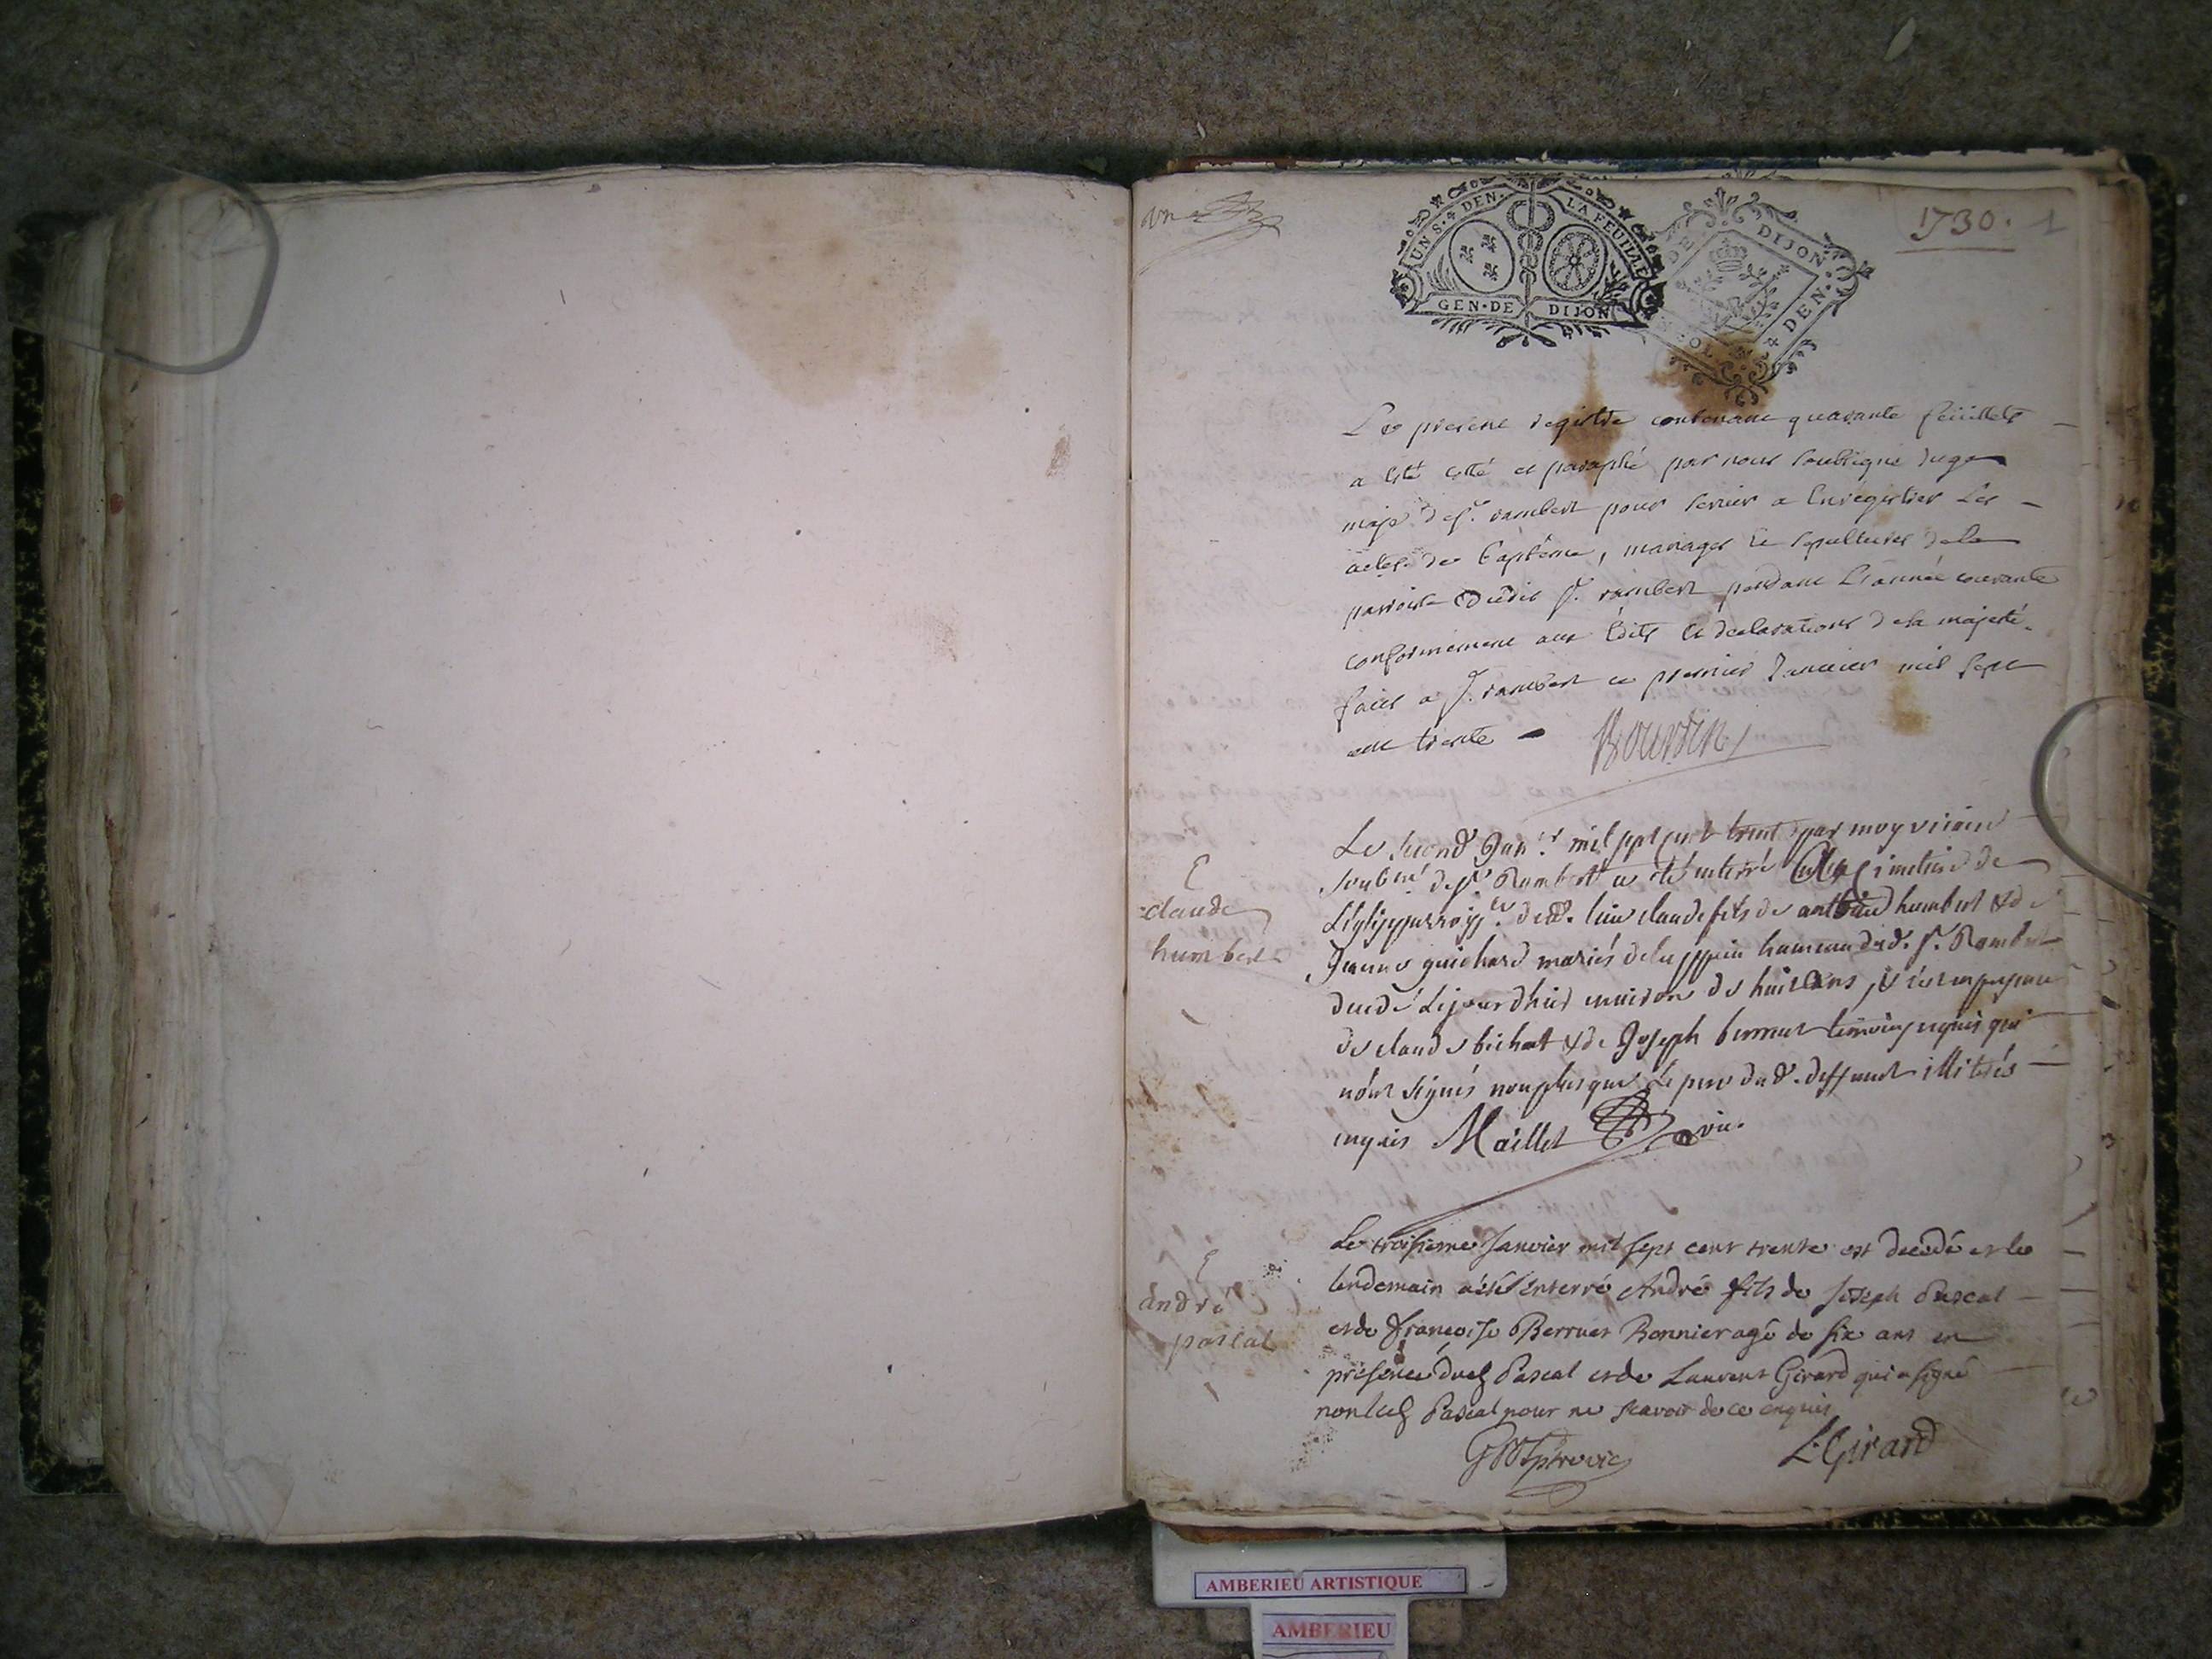 une
UN S. 4 DEN. LA FEUILLE
GEN. DE DIJON
DE DIJON
SOL 4 DEN.
1730. 1
Le present registre contenant quarante feüillets
a esté cotté et paraphé par nous soubsigné Juge
maje de st. rambert pour servir a Enregistrer Les
actes de baptême, mariages Et sepultures de la
parroisse dudit st. rambert pendant L'année courante
conformement aux Edits Et declarations de sa majesté
faict a st. rambert ce premier Janvier mil sept
cent trente
Bourdin
Le second Janer. mil sept cent trent par moy vicaire
soubné. de st. Rambert a été enterré cimetiere de
L'églize parroisle. dud. lieu claude fils de humbert & de
Jeanne guichard mariés de hameau dud. st. Rambert
decedé d'huict ans
de claude bichat & de Joseph temoins requis qui
n'ont signés non plus que Le pere dud. deffunct illiterés
enquis Maillet vic.
claude
humbert
Le troisieme Janvier mil sept cent trente est decedé et le
lendemain a été enterré André fils de Joseph Pascal
et de Françoise Berruet Bonnier agé de six ans en
présence dud Pascal et de Laurent Girard qui a signé
non led Pascal pour ne scavoir de ce enquis
L. Girard
André
pascal
AMBERIEU ARTISTIQUE
AMBERIEU